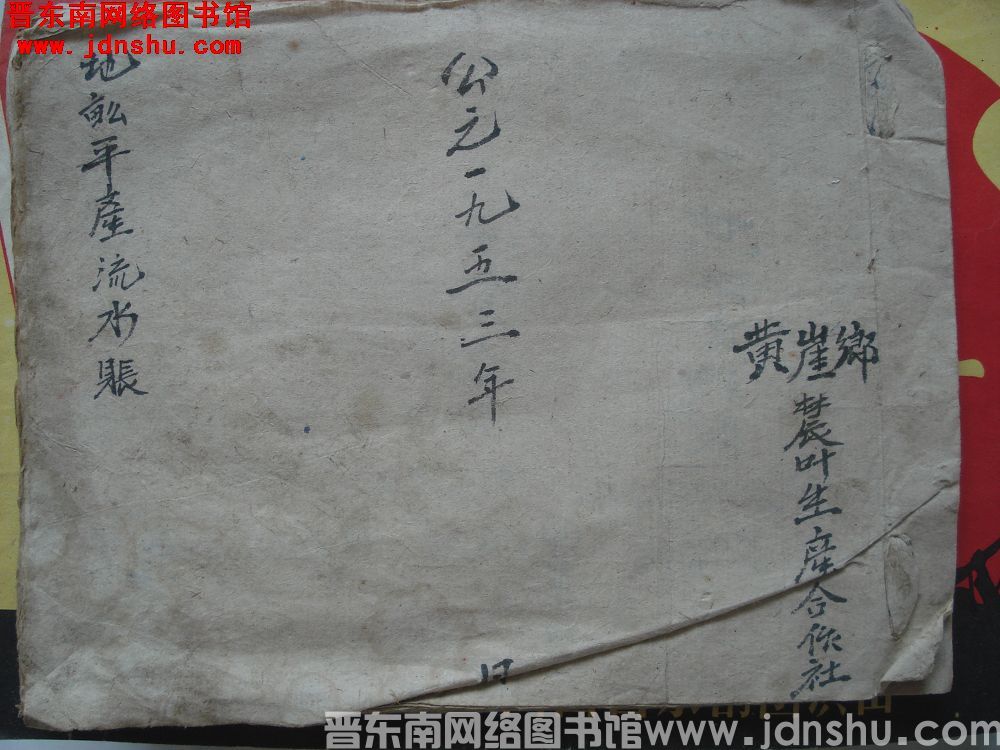 晋东南网络图书馆
www.jdnshu.com
黄崖鄉
農叶生産合作社
公元一九五三年
日
地畝平產流水賬
晋东南网络图书馆 www.jdnshu.com